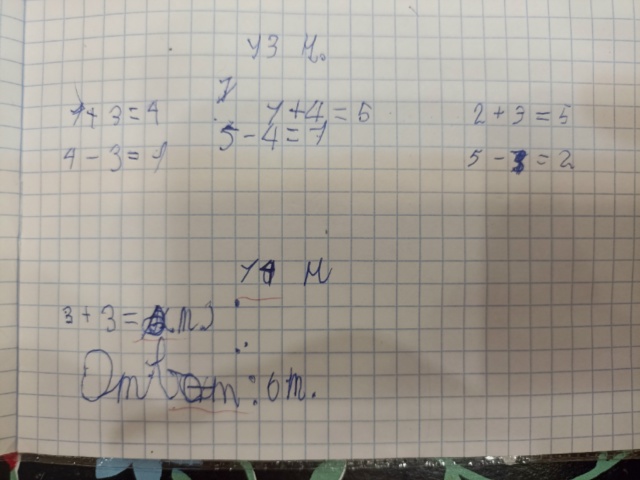 13 Н.
1+3=4 1+4=5 2+3=5
4-3=1 5-4=1 5-3=2
14 Н
3+3=6(т.)
Ответ: 6 т.